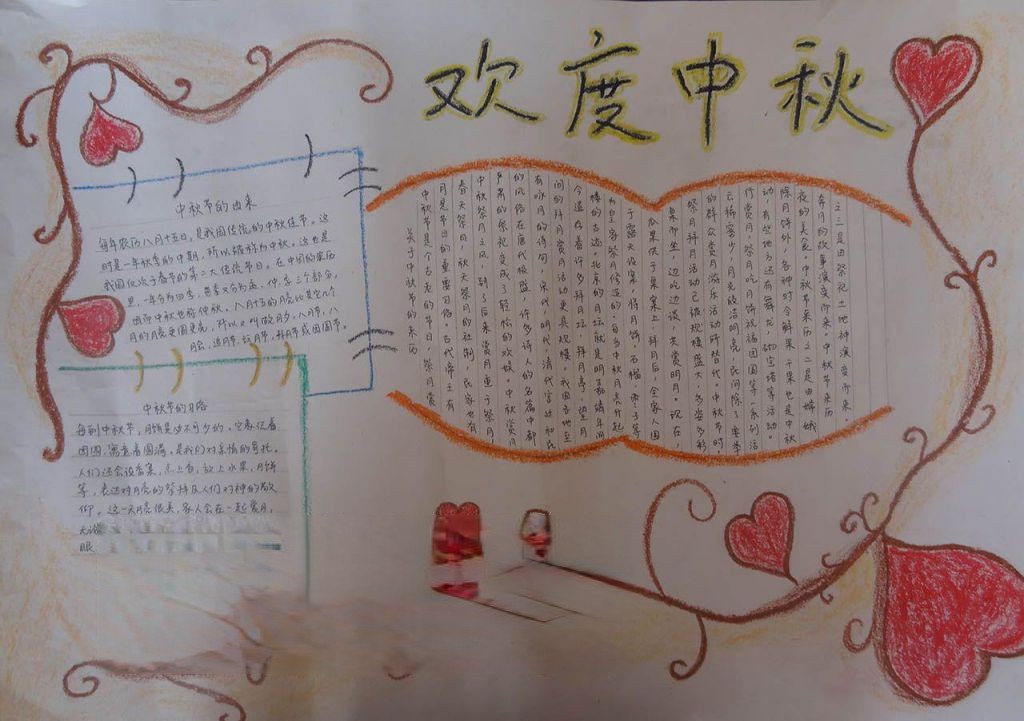 欢度中秋
中秋节的由来
每年农历八月十五日,是我国传统的中秋佳节。这
时是一年秋季的中期,所以被称为中秋。这也是
我国仅次于春节的第二大传统节日。在中国的农历
里,一年分为四季,每季又分为孟、仲、季三个部分,
因而中秋也称仲秋。八月十五的月亮比其它几个
月的月亮更圆更亮,所以又叫做月夕,八月节,
月会,追月节,玩月节,拜月节或团圆节。
中秋节的习俗
每到中秋节,月饼是必不可少的。它象征着
团圆,寓意着圆满。是我们对亲情的寄托。
人们还会设香案,点上香,放上水果,月饼
等,表达对月亮的崇拜及人们对神的敬
仰。这一天月亮很美,家人会在一起赏月,
眼
关于中秋节的来历
中秋节是个古老的节日,祭月赏
月是节日的重要习俗。古代帝王有
春天祭日,秋天祭月的社制,民家也有
中秋祭月之风,到了后来赏月重于祭月,
严肃的祭祀变成了轻松的欢娱。中秋赏月
的风俗在唐代极盛,许多诗人的名篇中都
有咏月的诗句,宋代,明代,清代宫廷和民
间的拜月赏月活动更具规模。我国各地至
今遗存着许多拜月坛,拜月亭,望月
楼的古迹。北京的月坛就是明嘉靖年间
为皇家祭月修造的。每当中秋月亮升起,
于露天设案,将月饼、石榴、枣子等
瓜果供于桌案上,拜月后,全家人围
桌而坐,边吃边谈,共赏明月。现在,
祭月拜月活动已被规模盛大、多姿多彩
的群众赏月游乐活动所替代。中秋节时,
云稀雾少,月光皎洁明亮,民间除了要举
行赏月、祭月、吃月饼祝福团圆等一系列活
动,有些地方还有舞龙,砌宝塔等活动。
除月饼外,各种时令鲜果干果也是中秋
夜的美食。中秋节来历之二是由嫦娥
奔月的故事演变而来。中秋节来历
之三是由祭祀土地神演变而来。